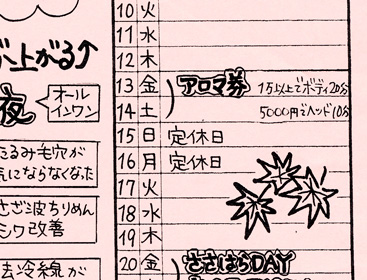 ぶ上がる↑
夜
オール
インワン
たるみ毛穴が
気にならなくなった
さざ波ちりめん
シワ改善
法令線が
10 火
11 水
12 木
13 金 アロマ券 1万以上でボディ20分
14 土 5000円でヘッド10分
15 日 定休日
16 月 定休日
17 火
18 水
19 木
20 金 ささはらDAY